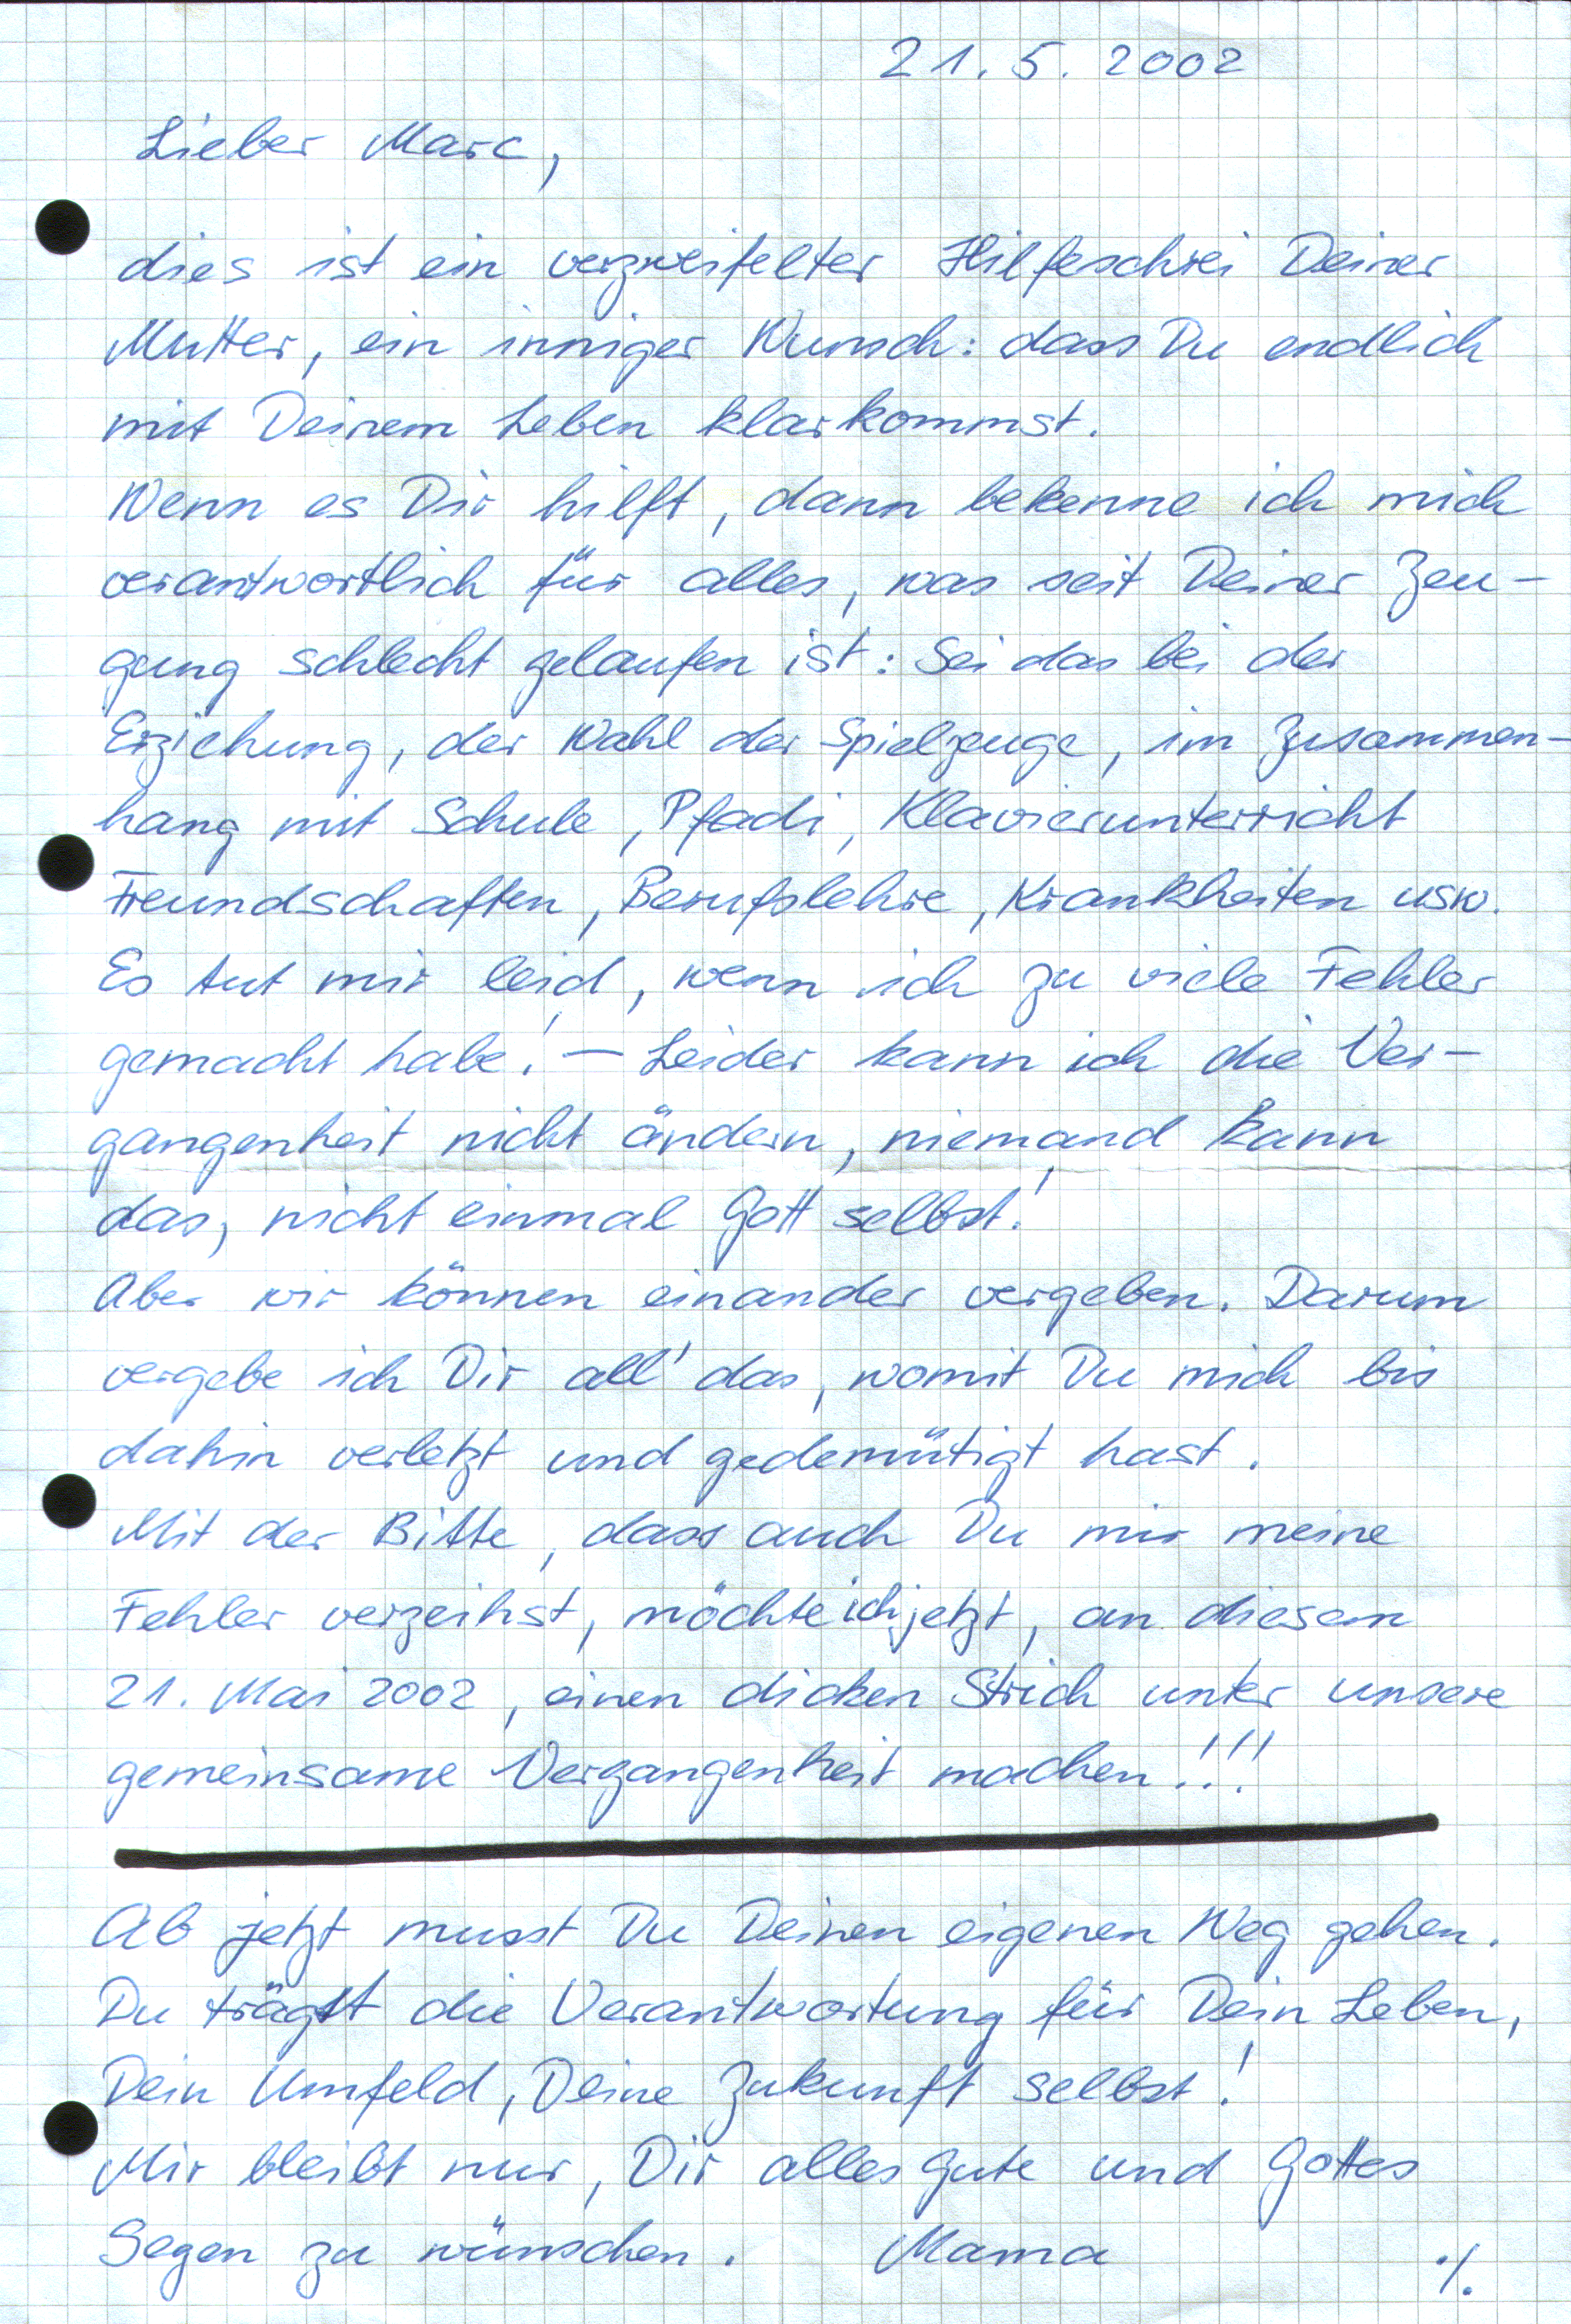 21.5.2002
Lieber Marc,
dies ist ein verzweifelter Hilfeschrei Deiner
Mutter, ein inniger Wunsch: dass Du endlich
mit Deinem Leben klarkommst.
Wenn es Dir hilft, dann bekenne ich mich
verantwortlich für alles, was seit Deiner Zeu-
gung schlecht gelaufen ist: Sei das bei der
Erziehung, der Wahl der Spielzeuge, im Zusammen-
hang mit Schule, Pfadi, Klavierunterricht
Freundschaften, Berufslehre, Krankheiten usw.
Es tut mir leid, wenn ich zu viele Fehler
gemacht habe! – Leider kann ich die Ver-
gangenheit nicht ändern, niemand kann
das, nicht einmal Gott selbst!
Aber wir können einander vergeben. Darum
vergebe ich Dir all' das, womit Du mich bis
dahin verletzt und gedemütigt hast.
Mit der Bitte, dass auch Du mir meine
Fehler verzeihst, möchte ich jetzt, an diesem
21. Mai 2002, einen dicken Strich unter unsere
gemeinsame Vergangenheit machen!!!
Ab jetzt musst Du Deinen eigenen Weg gehen.
Du trägst die Verantwortung für Dein Leben,
Dein Umfeld, Deine Zukunft selbst!
Mir bleibt nur, Dir alles Gute und Gottes
Segen zu wünschen. Mama ./.